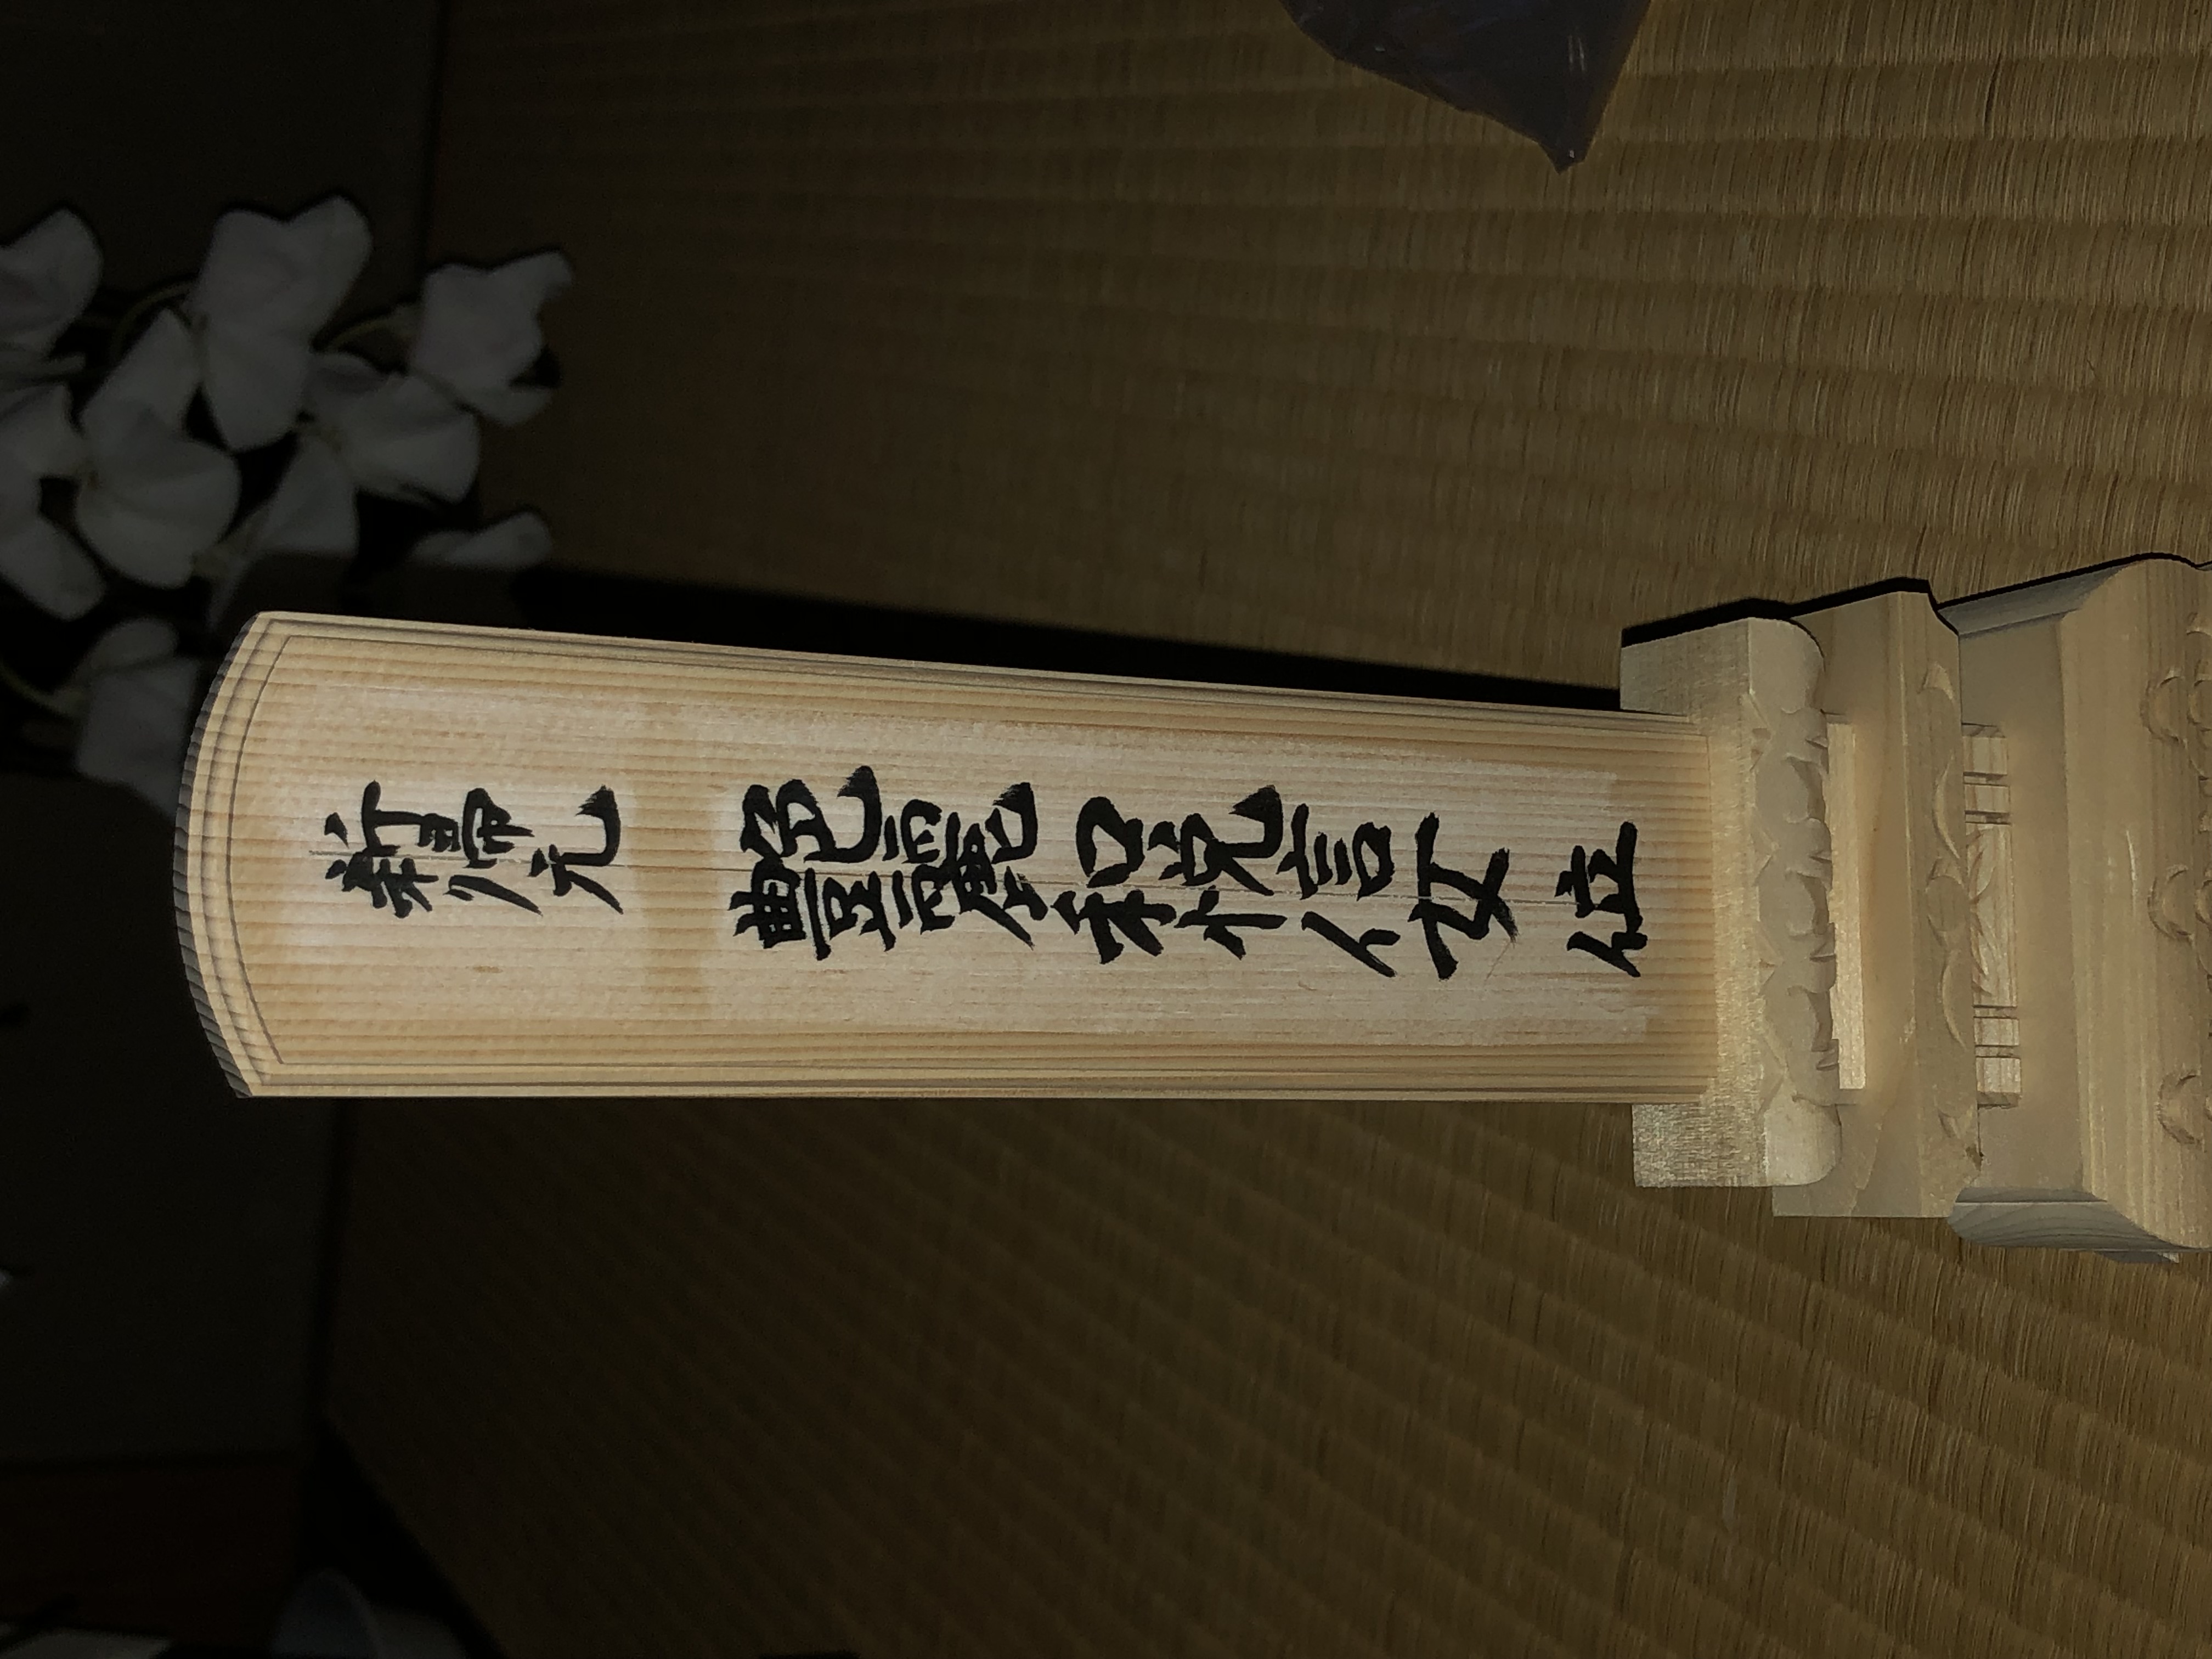 新帰元 艶麗和悦信女 位